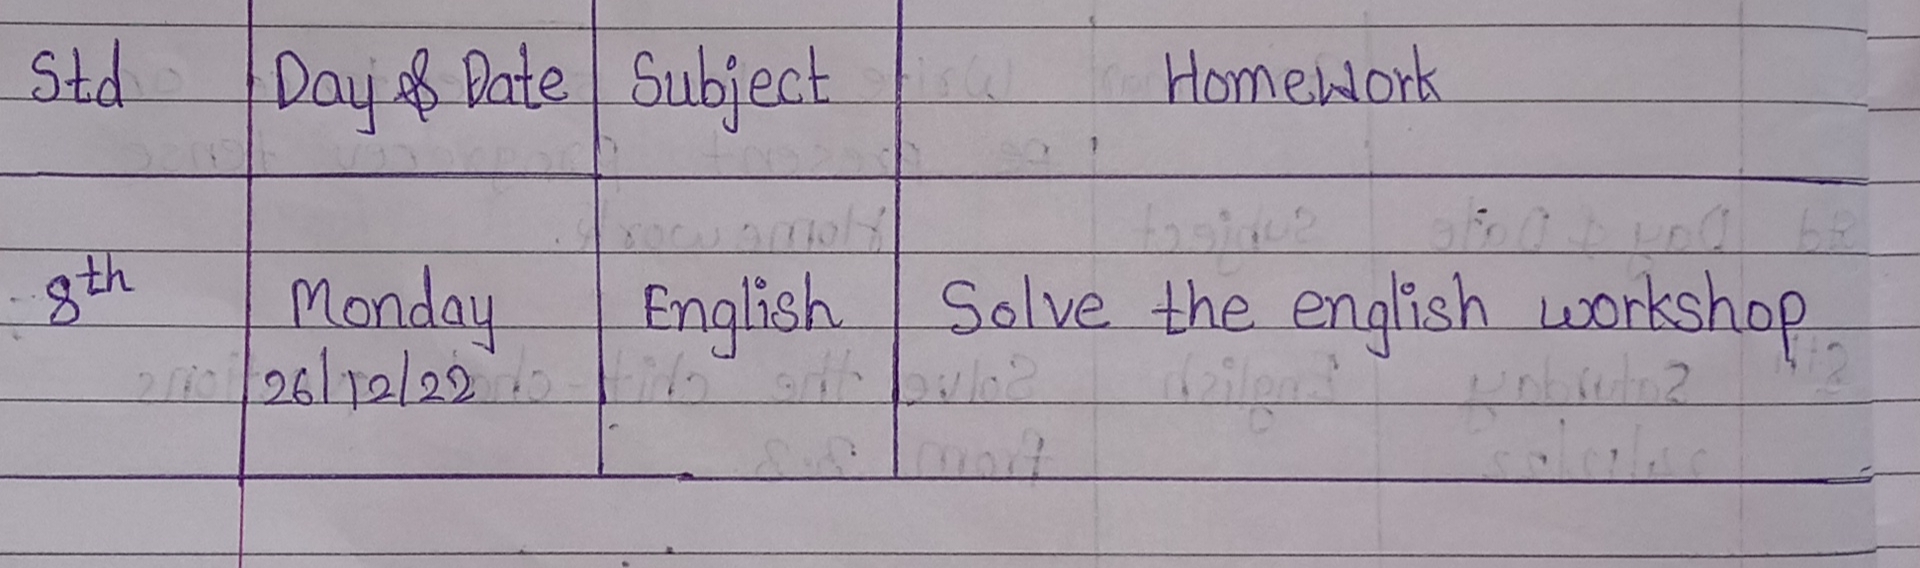 Std Day & Date Subject Homework
8th Monday English Solve the english workshop
26/12/22